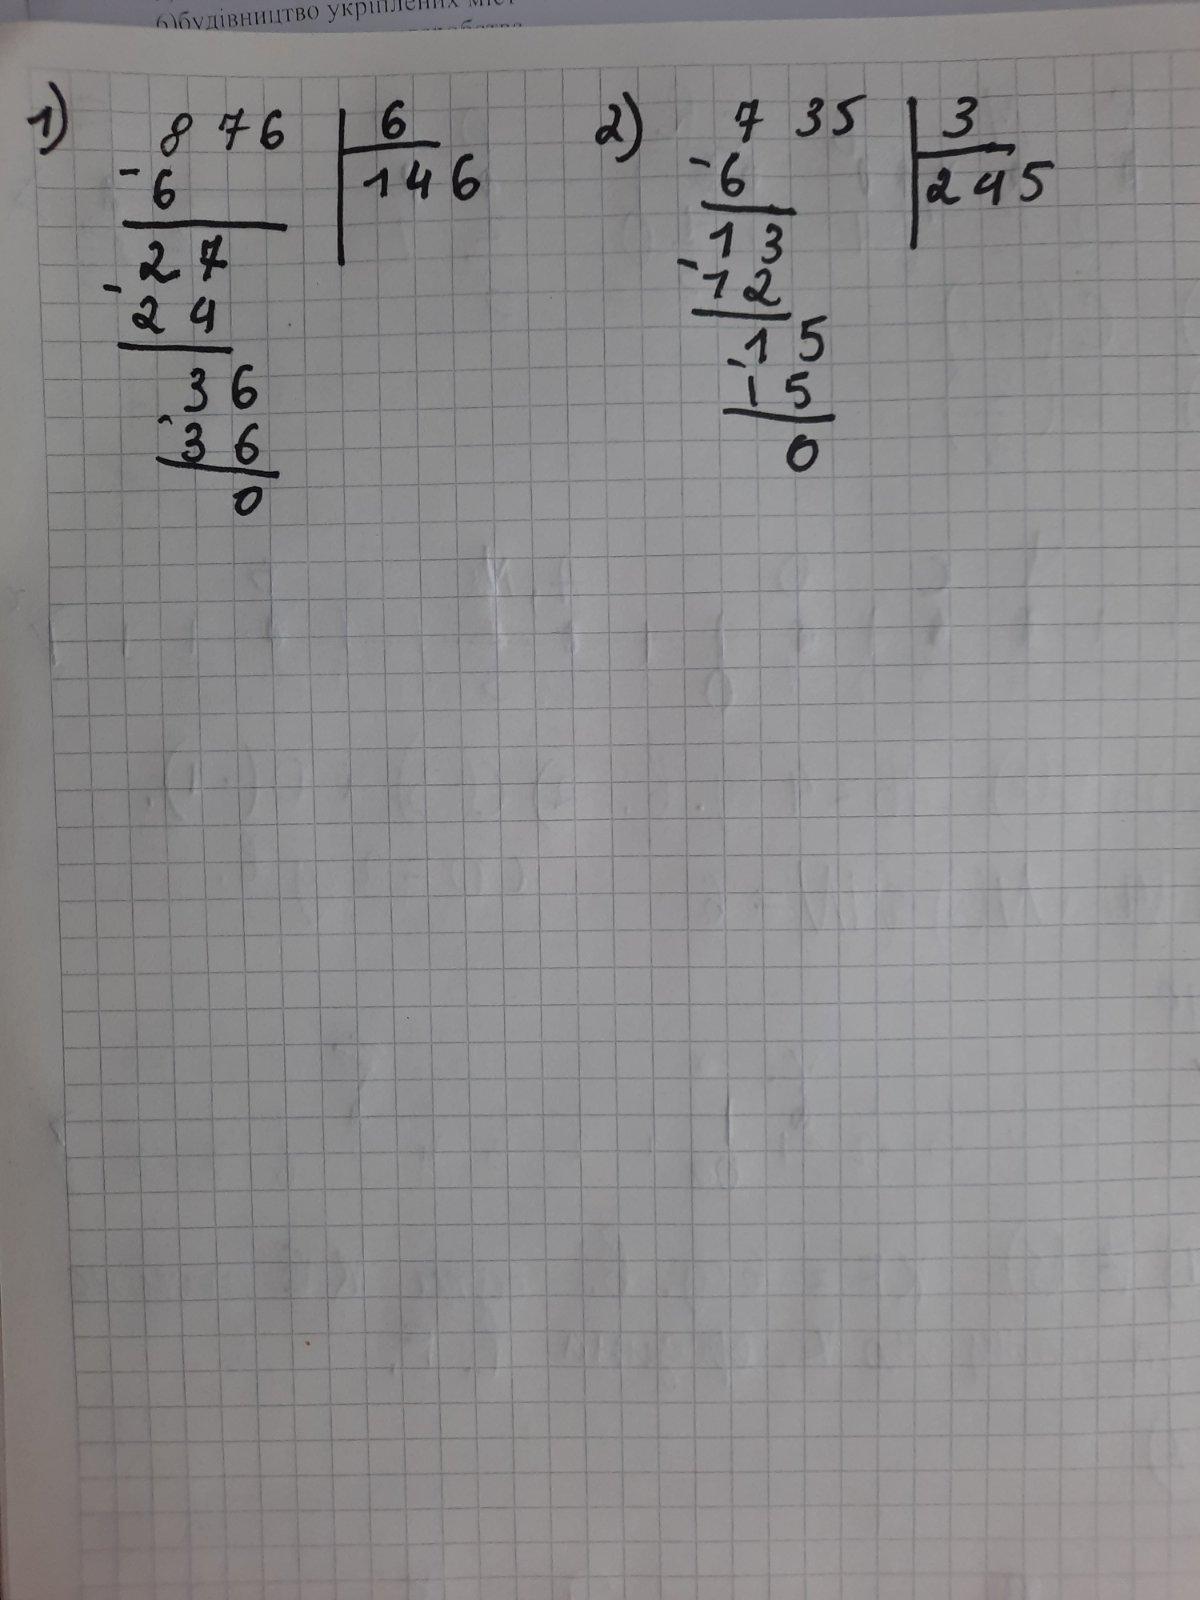 6)будівництво укріплених міст
1) 876 | 6
- 6 | 146
27
- 24
36
- 36
0
2) 735 | 3
- 6 | 245
13
- 12
15
- 15
0